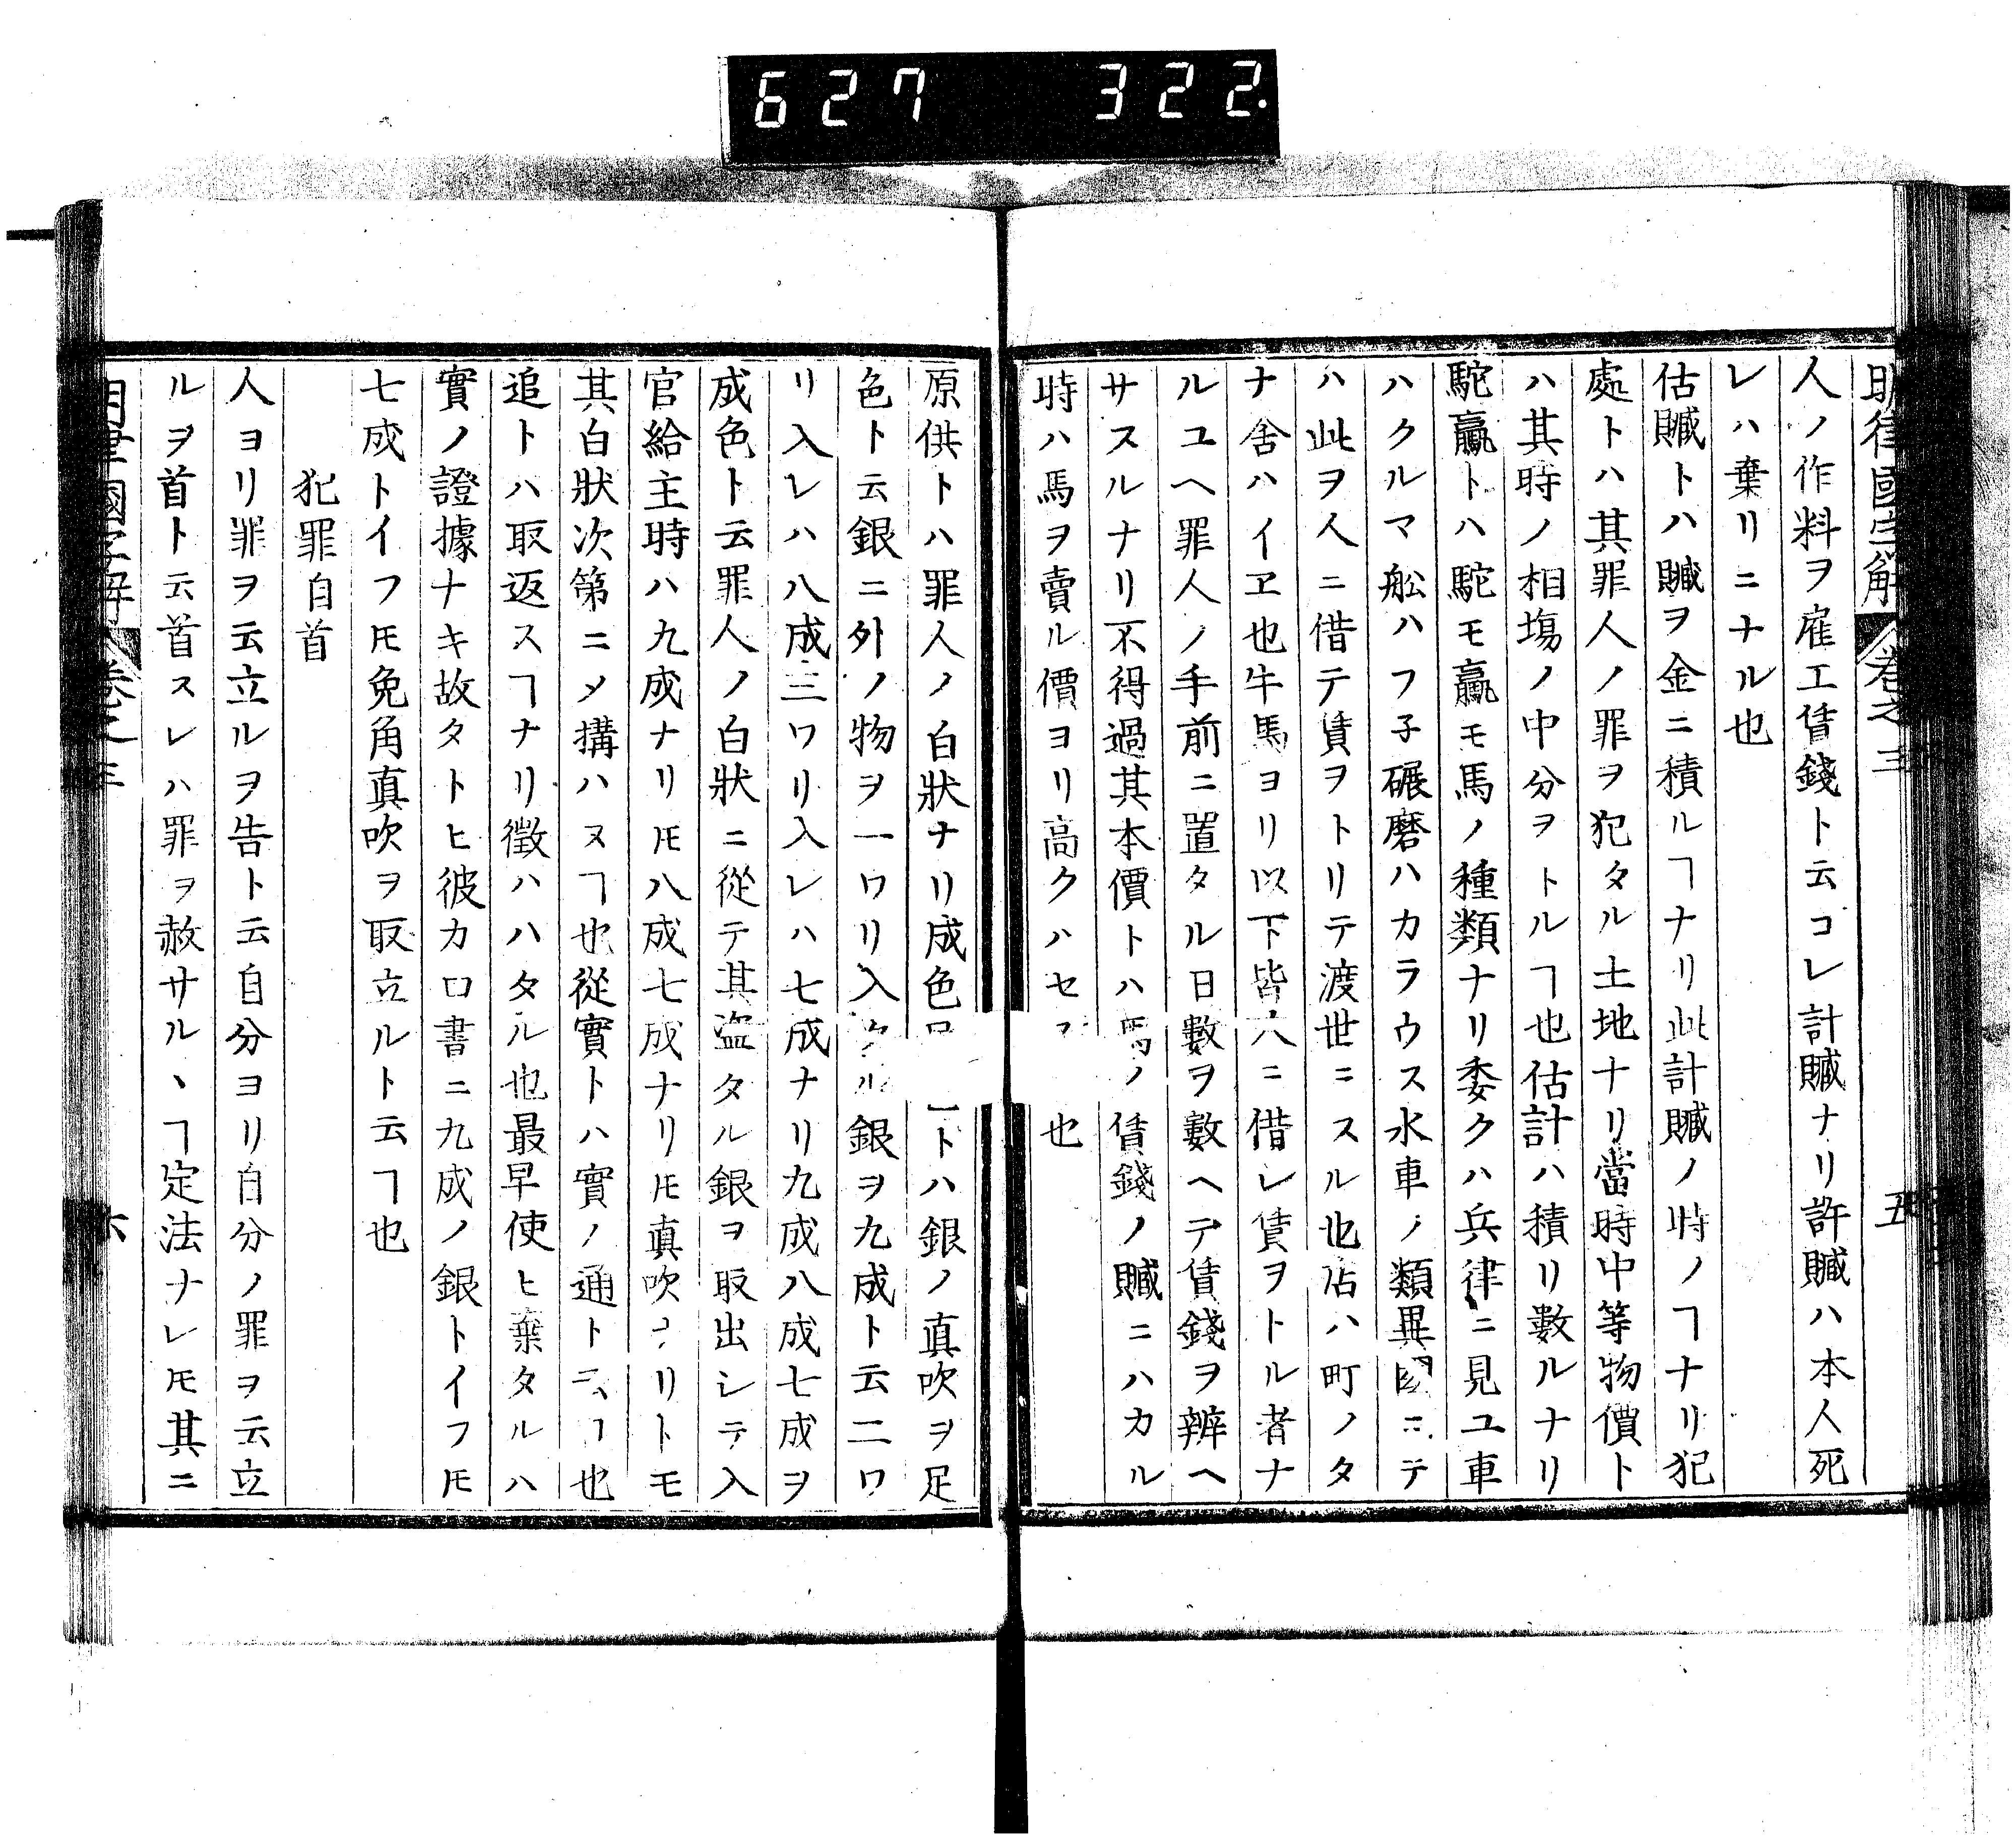 627 322
明律國字解 卷之三 五
人ノ作料ヲ雇工賃錢ト云コレ計贓ナリ許贓ハ本人死
レハ棄リニナル也
估贓トハ贓ヲ金ニ積ルヿナリ此計贓ノ時ノヿナリ犯
處トハ其罪人ノ罪ヲ犯タル土地ナリ當時中等物價ト
ハ其時ノ相塲ノ中分ヲトルヿ也估計ハ積リ數ルナリ
駝驘トハ駝モ驘モ馬ノ種類ナリ委クハ兵律ニ見ユ車
ハクルマ舩ハフ子碾磨ハカラウス水車ノ類異國ニテ
ハ此ヲ人ニ借テ賃ヲトリテ渡世ニスル也店ハ町ノタ
ナ舍ハイヱ也牛馬ヨリ以下皆人ニ借レ賃ヲトル者ナ
ルユヘ罪人ノ手前ニ置タル日數ヲ數ヘテ賃錢ヲ辨ヘ
サスルナリ不得過其本價トハ馬ノ賃錢ノ贓ニハカル
時ハ馬ヲ賣ル價ヨリ高クハセ也
原供トハ罪人ノ白狀ナリ成色トハ銀ノ真吹ヲ足
色ト云銀ニ外ノ物ヲ一ワリ入タル銀ヲ九成ト云二ワ
リ入レハ八成三ワリ入レハ七成ナリ九成八成七成ヲ
成色ト云罪人ノ白狀ニ從テ其盜タル銀ヲ取出シテ入
官給主時ハ九成ナリ𪜈八成七成ナリ𪜈真吹ヨリトモ
其白狀次第ニ〆搆ハヌヿ也從實トハ實ノ通ト云ヿ也
追トハ取返スヿナリ徵ハハタル也最早使ヒ棄タルハ
實ノ證據ナキ故タトヒ彼カ口書ニ九成ノ銀トイフ𪜈
七成トイフ𪜈免角真吹ヲ取立ルト云ヿ也
犯罪自首
人ヨリ罪ヲ云立ルヲ告ト云自分ヨリ自分ノ罪ヲ云立
ルヲ首ト云首スレハ罪ヲ赦サルヽヿ定法ナレ𪜈其ニ
明律國字解 卷之三 六